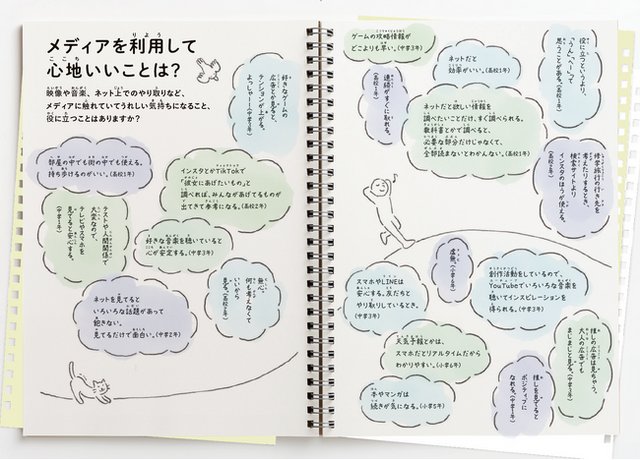 メディアを利用して
心地いいことは?
映像や音楽、ネット上でのやり取りなど、
メディアに触れていてうれしい気持ちになること、
役に立つことはありますか?
好きなゲームの
広告とか見ると、
テンションが上がる。
よっしゃー!(中学1年)
部屋の中でも街の中でも使える。
持ち歩けるのがいい。(高校1年)
インスタとかTikTokで
「彼女にあげたいもの」と
調べれば、みんながあげてるものが
出てきて参考になる。(高校2年)
テストや人間関係で
大変なので、
テレビやスマホを
見てると安心する。
(中学1年)
好きな音楽を聴いていると
心が安定する。(中学3年)
無心。
何も考えなくて
いいから
見る。(高校1年)
ネットを見てると
いろいろな話題があって
飽きない。
見てるだけで面白い。(中学2年)
ゲームの攻略情報が
どこよりも早い。(中学3年)
連絡がすぐに取れる。
(高校1年)
ネットだと
効率がいい。(高校1年)
役に立つというより、
「うん、へーって
思うことがある。(高校1年)
ネットだと欲しい情報を
調べたいことだけ、すぐ調べられる。
教科書とかで調べると、
必要な部分だけじゃなくて、
全部読まないとわかんない。(高校1年)
修学旅行の行き先を
考えたりするとき、
検索サイトより
インスタのほうが使える。
(高校2年)
スマホやLINEは
安心する。友だちと
やり取りしているとき。
(中学3年)
虚無。(小学6年)
創作活動をしているので、
YouTubeでいろいろな音楽を
聴いてインスピレーションを
得られる。(中学3年)
天気予報とかは、
スマホだとリアルタイムだから
わかりやすい。(小学6年)
本やマンガは
続きが気になる。(小学5年)
推しを見てると
ポジティブに
なれる。(中学1年)
推しの広告は見ちゃう。
大人の広告でも
まじまじと見る。(中学3年)